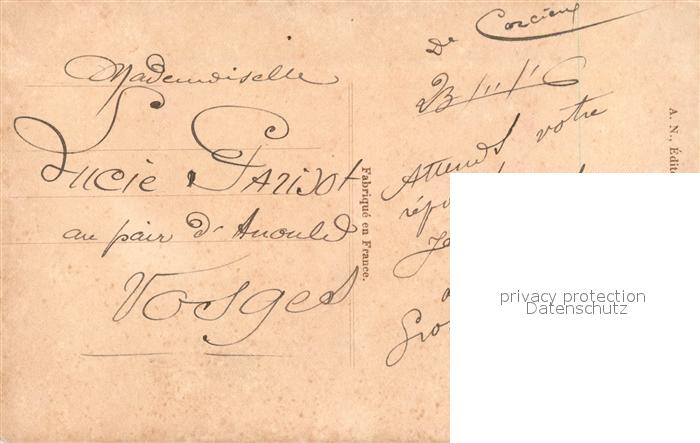 Mademoiselle
Lucie Parisot
au pair d'Anould
Vosges
Fabriqué en France.
De Corcieux
23/11/16
Attends votre
A. N., Édit
privacy protection
Datenschutz